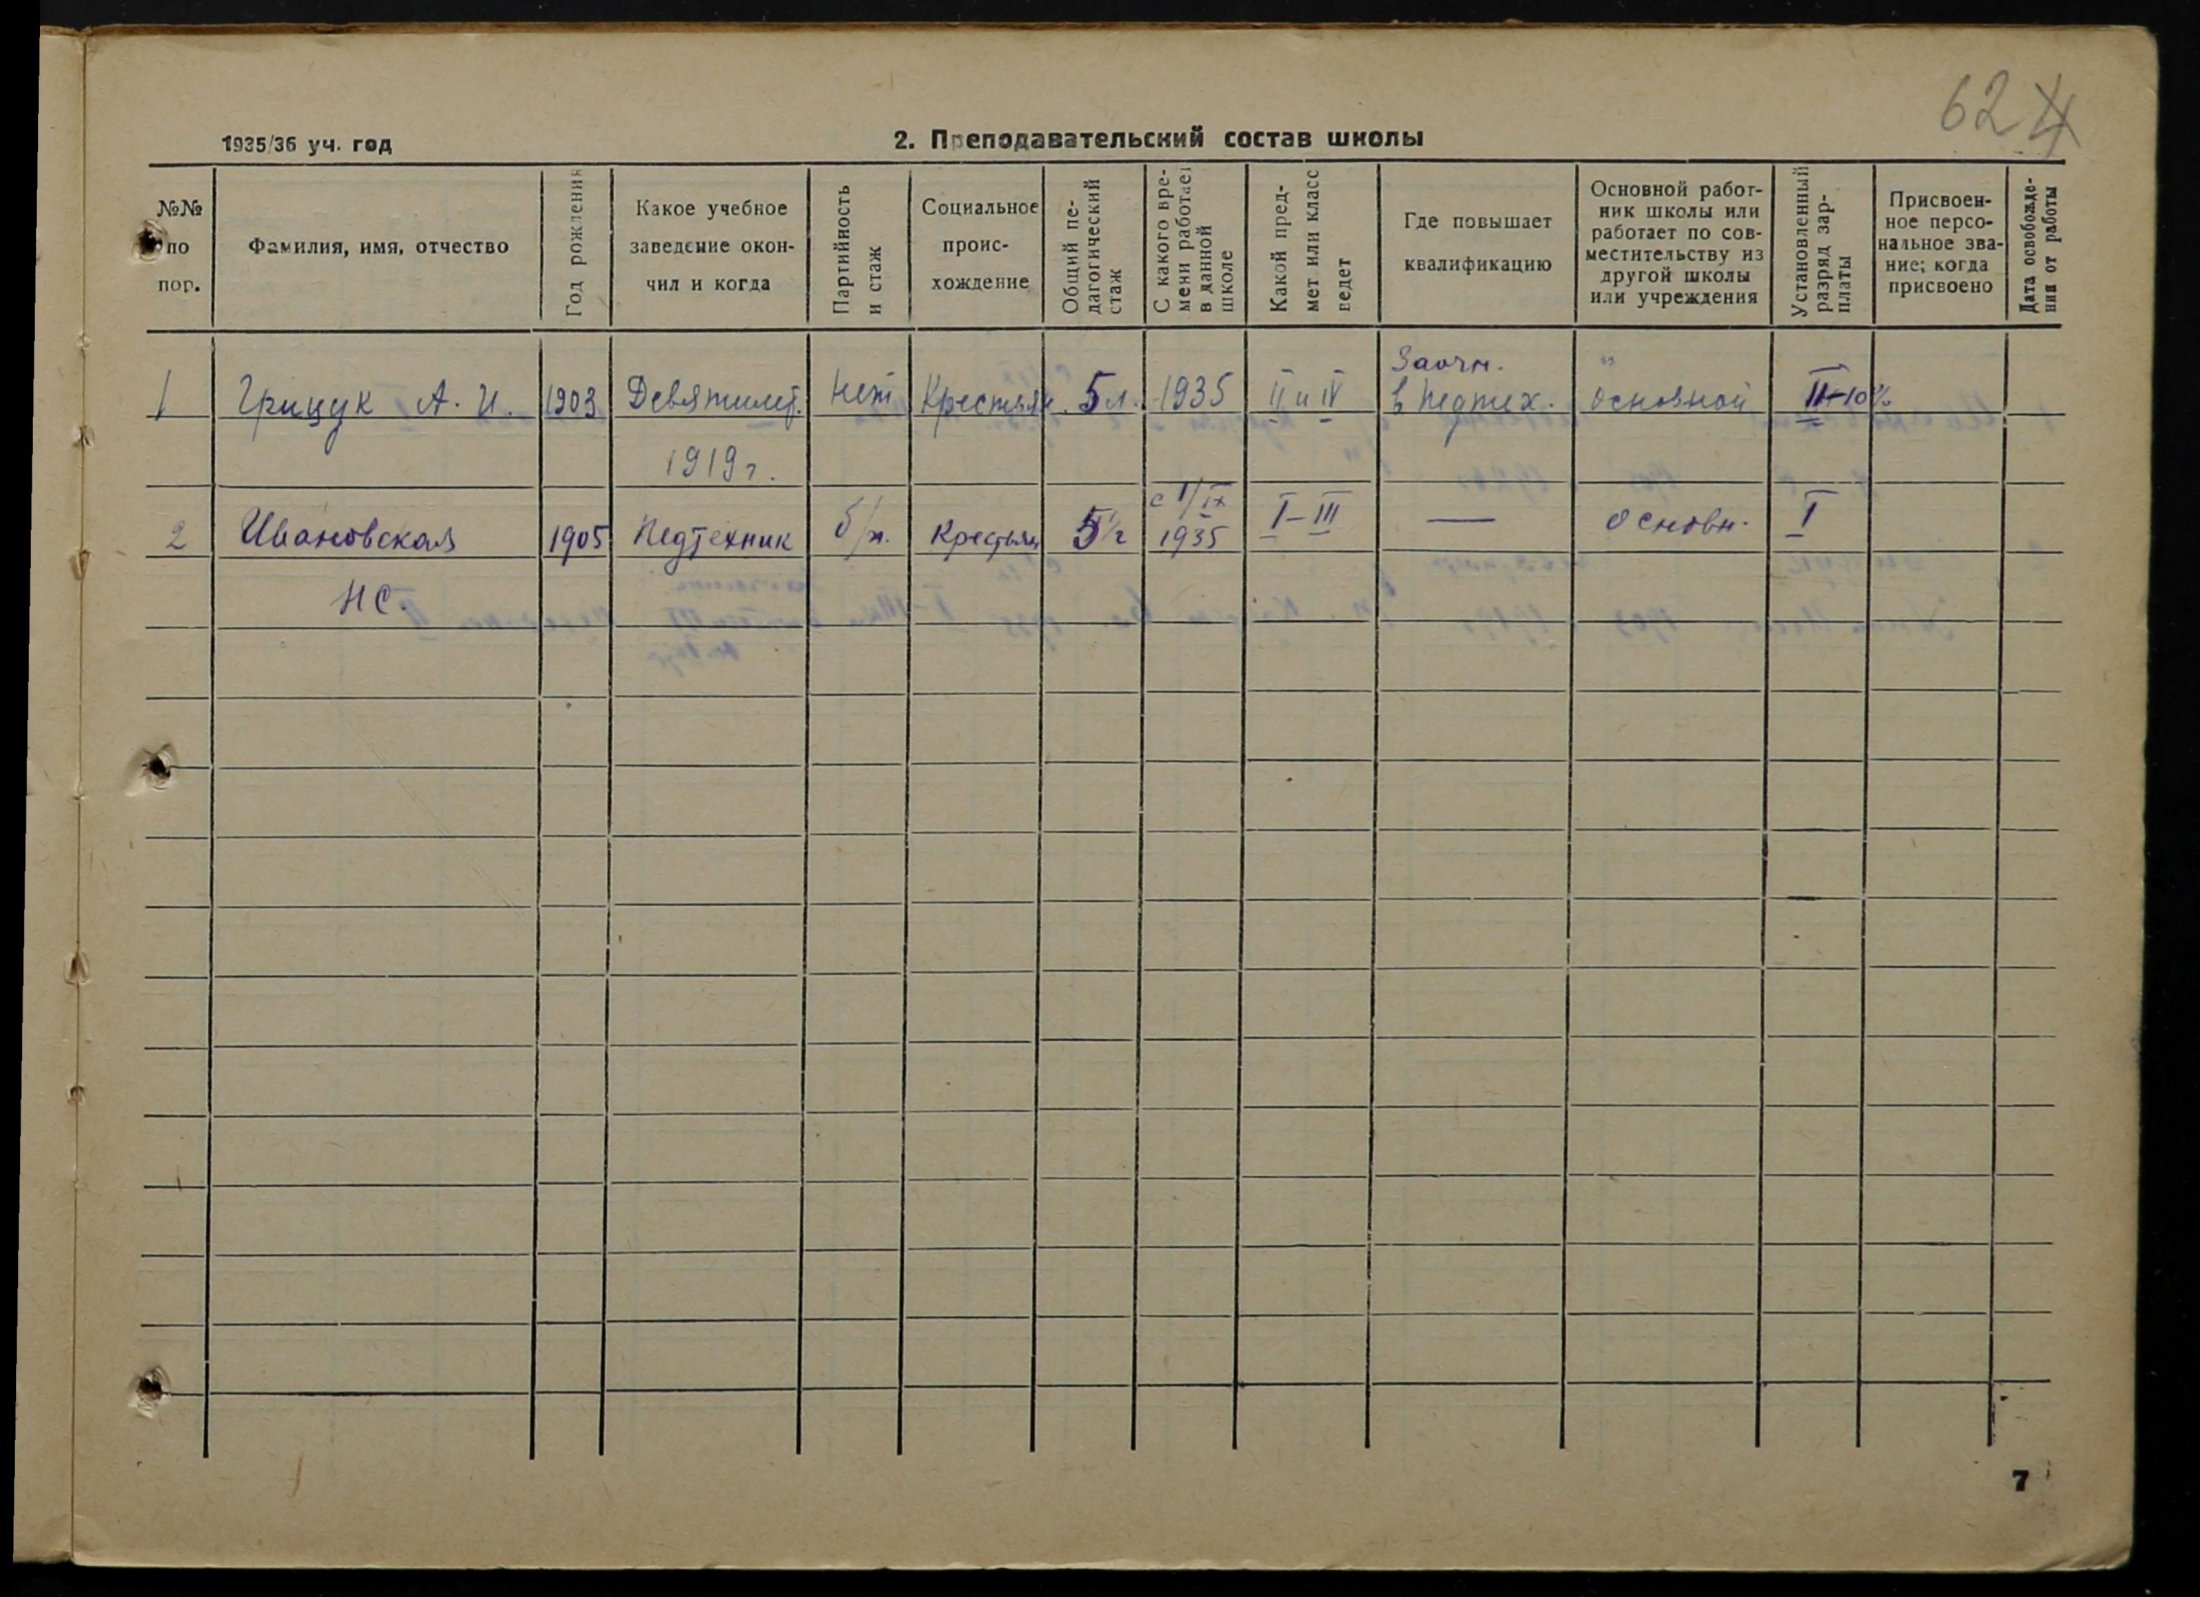 62
4
1935/36 уч. год
2. Преподавательский состав школы
№№ по пор.
Фамилия, имя, отчество
Год рождения
Какое учебное заведение окончил и когда
Партийность и стаж
Социальное происхождение
Общий педагогический стаж
С какого времени работает в данной школе
Какой предмет или класс ведет
Где повышает квалификацию
Основной работник школы или работает по совместительству из другой школы или учреждения
Установленный разряд зарплаты
Присвоенное персональное звание; когда присвоено
Дата освобождения от работы
1 Грицук А. И. 1903 Девятилет. 1919 г. нет Крестьян. 5 л. 1935 II и IV Заочн. в педтех. основной II+10%
2 Ивановская Н С. 1905 Педтехник б/п. Крестьян 5 1/2 с 1/IX 1935 I–III — основн. I
7